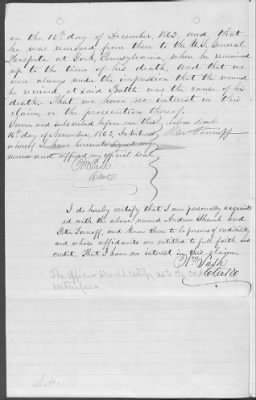 on the 13th day of December 1862, and that
he was removed from there to the U.S. General
Hospital at York, Pennsylvania, where he remained
up to the time of his death, And that we
were always under the impression that the wound
he received at said battle was the cause of his
death. That we have no interest in this
claim or the prosecution thereof.
Sworn and subscribed before me this
day of November, 186
whereof I have hereunto signed my
name and affixed my official seal
Clerk
I do hereby certify that I am personally acquainted
with the above named Andrew and
Peter and know them to be persons of credibility
and whose affidavits are entitled to full faith and
credit. That I have no interest in this claim
Clerk
The officer should certify as to the